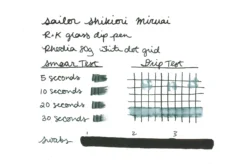 sailor shikiori miruai
R+K glass dip pen
Rhodia 80g dot grid
Smear Test Drip Test
5 seconds
10 seconds
20 seconds
30 seconds
swabs 1 2 3